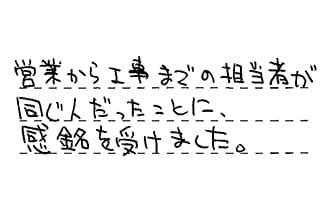 営業から工事までの担当者が
同じ人だったことに、
感銘を受けました。